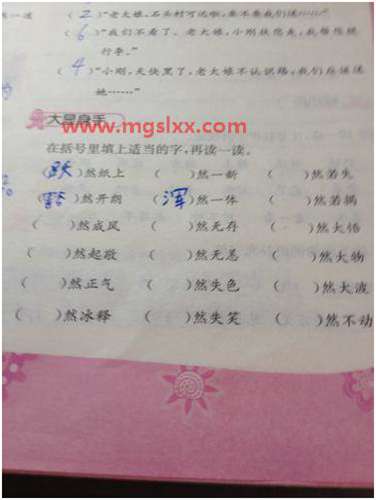 (2)"老大娘,石头村可远啦,要不要我们送……"
(6)"我们不看了。老大娘,小刚扶您走,我帮您提
行李。"
(4)"小刚,天快黑了,老大娘不认识路,我们应该送
她……"
大显身手
www.mgslxx.com
在括号里填上适当的字,再读一读。
(跃)然纸上 ( )然一新 ( )然若失
(豁)然开朗 (浑)然一体 ( )然若揭
( )然成风 ( )然无存 ( )然大悟
( )然起敬 ( )然无恙 ( )然大物
( )然正气 ( )然失色 ( )然大波
( )然冰释 ( )然失笑 ( )然不动